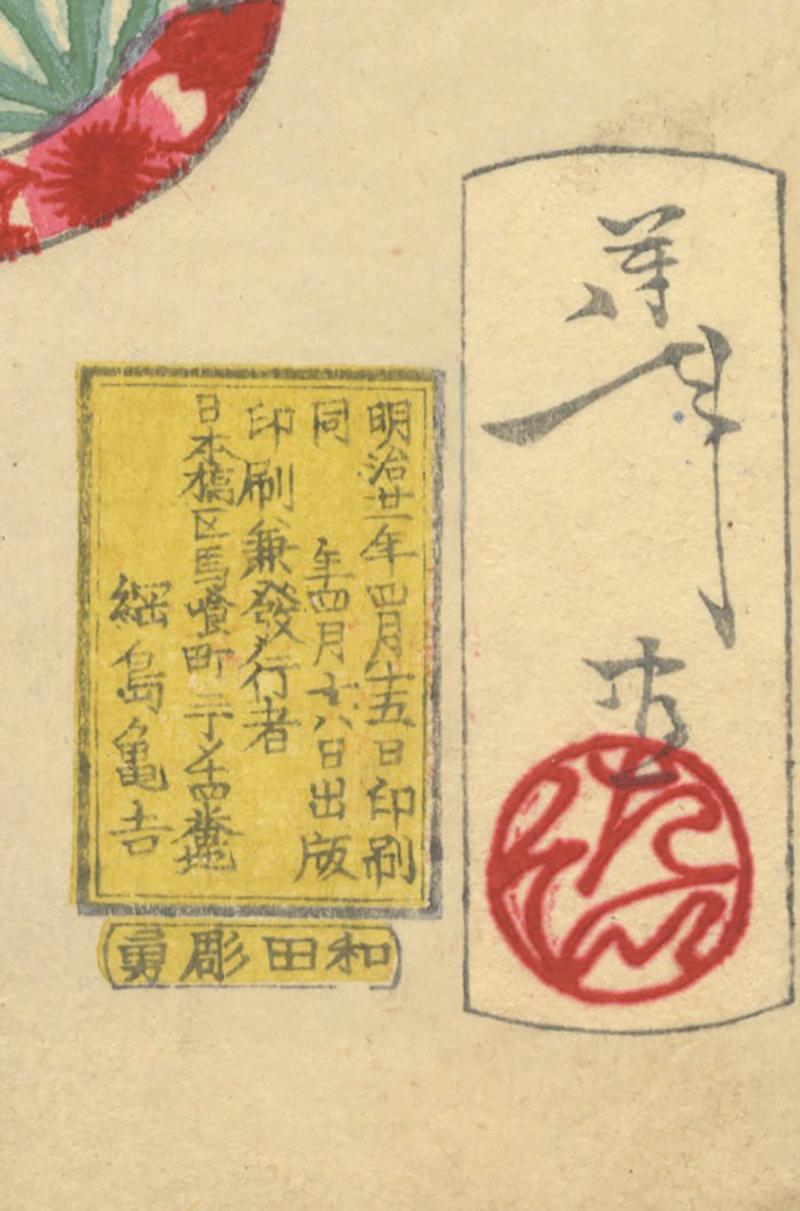 芳年画
明治廿一年四月十五日印刷
同 年四月十八日出版
印刷兼發行者
日本橋区馬喰町二丁メ十四番地
綱島亀吉
和田彫勇